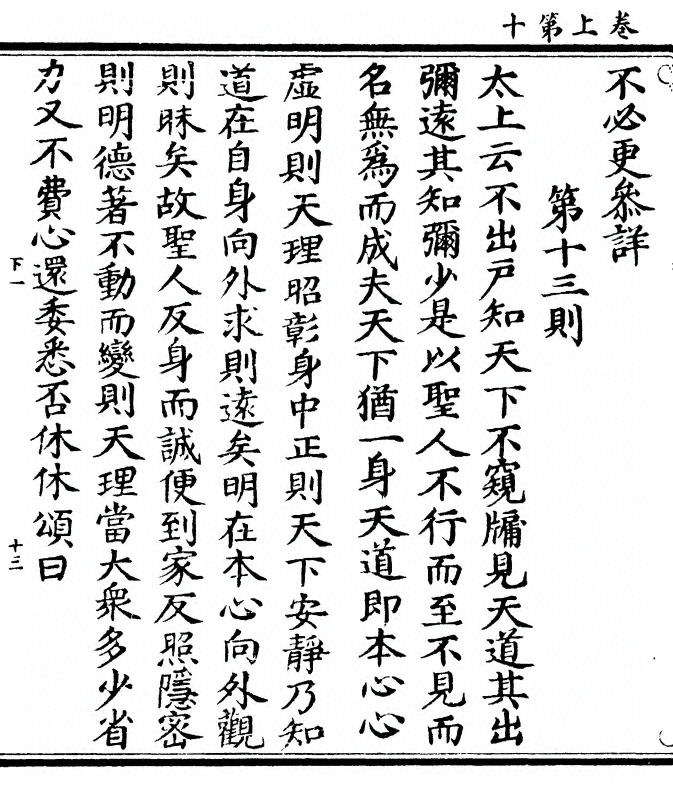 十第上卷
不必更叅詳
第十三則
太上云不出戸知天下不窺牖見天道其出
彌遠其知彌少是以聖人不行而至不見而
名無爲而成夫天下猶一身天道即本心心
虛明則天理昭彰身中正則天下安靜乃知
道在自身向外求則遠矣明在本心向外觀
則昧矣故聖人反身而誠便到家反照隱密
則明德著不動而變則天理當大衆多少省
力又不費心還委悉否休休頌曰
下一
十三